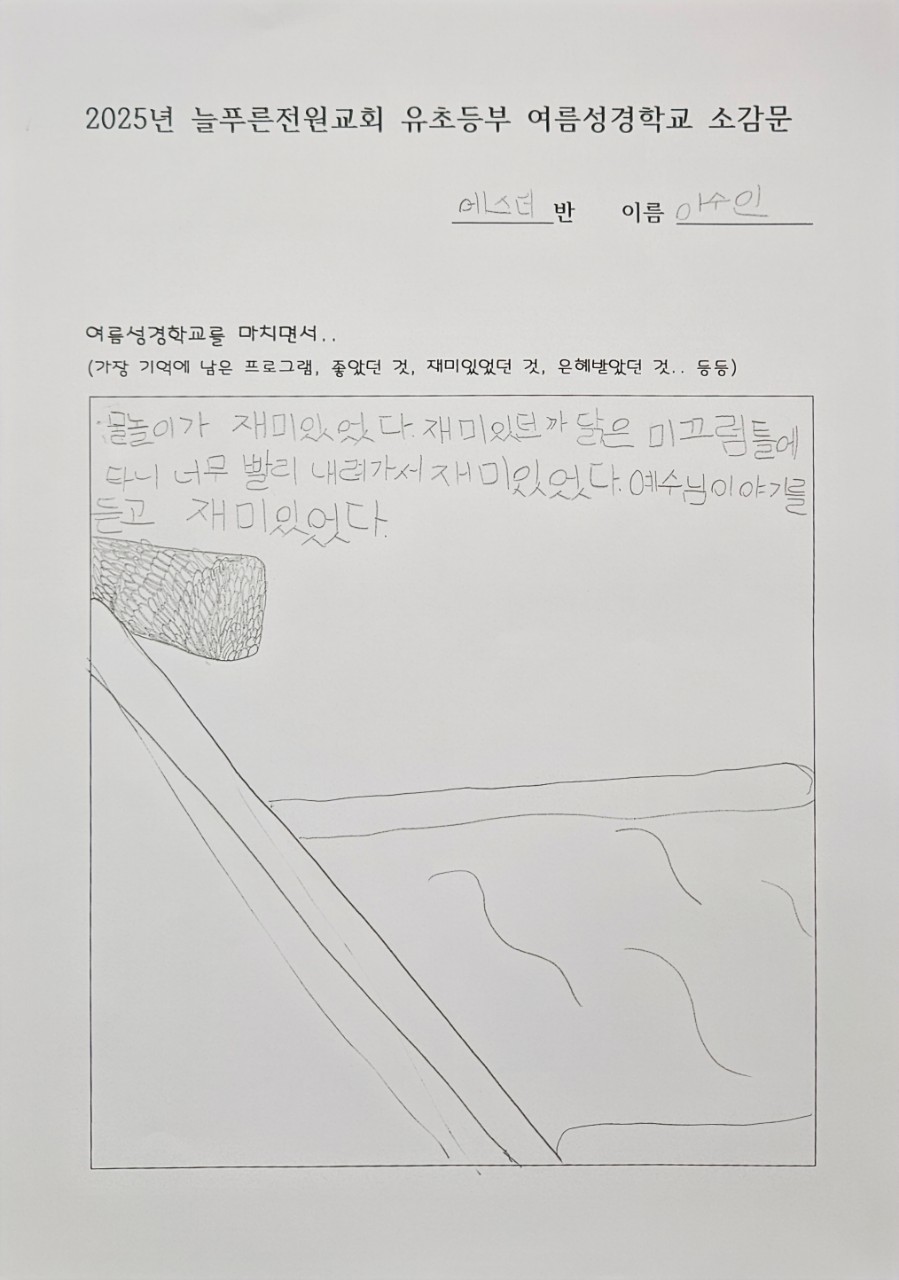 2025년 늘푸른전원교회 유초등부 여름성경학교 소감문
에스더 반 이름 이수인
여름성경학교를 마치면서..
(가장 기억에 남은 프로그램, 좋았던 것, 재미있었던 것, 은혜받았던 것.. 등등)
물놀이가 재미있었다. 재미있던 까닭은 미끄럼틀에
타니 너무 빨리 내려가서 재미있었다. 예수님이야기를
듣고 재미있었다.